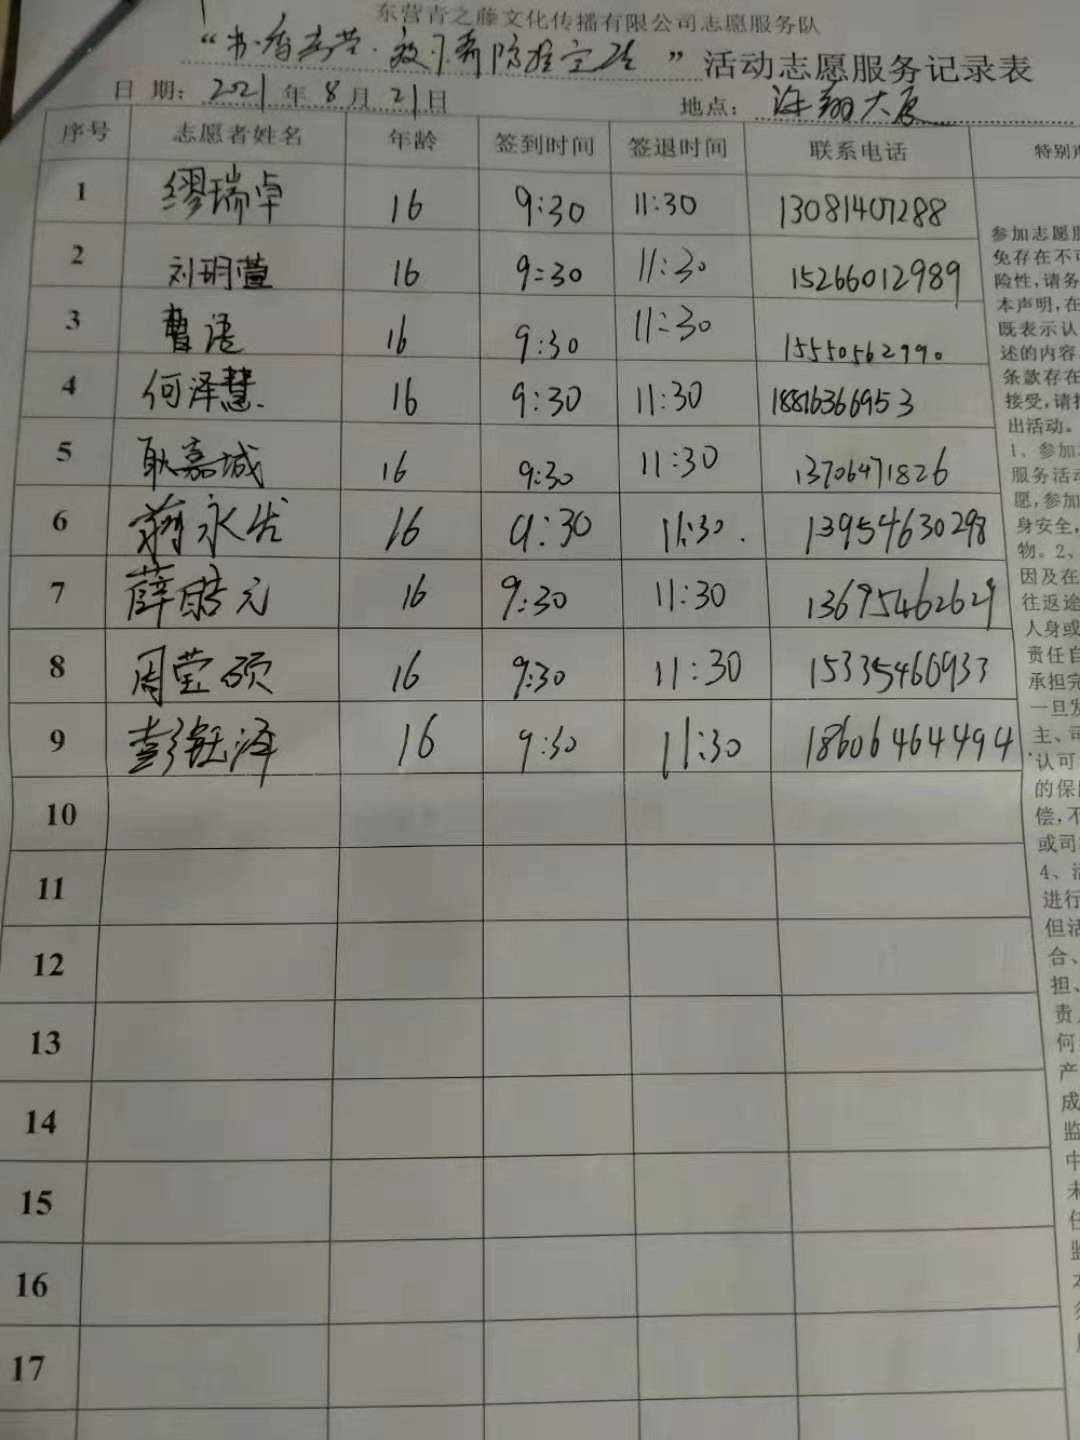 东营青之藤文化传播有限公司志愿服务队
“书香东营·  宣传”活动志愿服务记录表
日 期: 2021 年 8 月 21 日 地点: 海翔大厦
序号 志愿者姓名 年龄 签到时间 签退时间 联系电话 特别
1 缪瑞卓 16 9:30 11:30 13081407288
2 刘玥萱 16 9:30 11:30 15266012989
3 曹语 16 9:30 11:30 15550562990
4 何泽慧 16 9:30 11:30 18816366953
5 耿嘉城 16 9:30 11:30 13706471826
6 蒋永 16 9:30 11:30 13954630298
7 薛皓元 16 9:30 11:30 13695462629
8 周莹硕 16 9:30 11:30 15335460933
9 彭钰泽 16 9:30 11:30 18606464494
10
11
12
13
14
15
16
17
参加志愿
免存在不
险性,请务
本声明,在
既表示认
述的内容
条款存在
接受,请
出活动。
1、参加
服务活动
愿,参加
身安全,
物。2、
因及在
往返途
人身或
责任自
承担完
一旦发
主、司
认可
的保
偿,不
或司
4、活
进行
但活
合、
担、
责
何
产
成
监
中
未
任
监
本